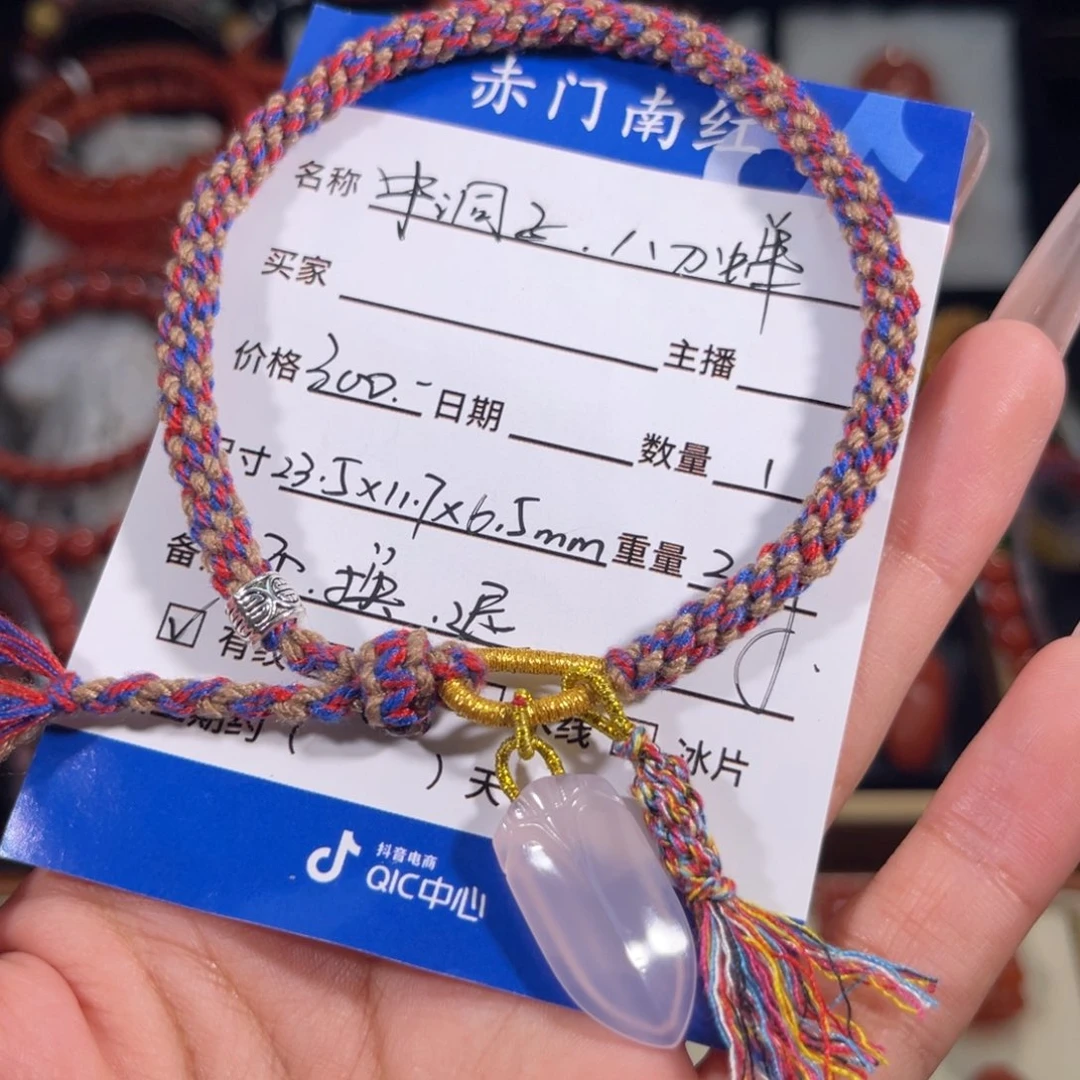 赤门南红
名称 冰洞玉.八刀蝉
买家 主播
价格 300.- 日期 数量 1
尺寸 23.5×11.7×6.5mm 重量 2
备 不.换.退
有线
期约（ ）天 线 冰片
抖音电商
QIC中心